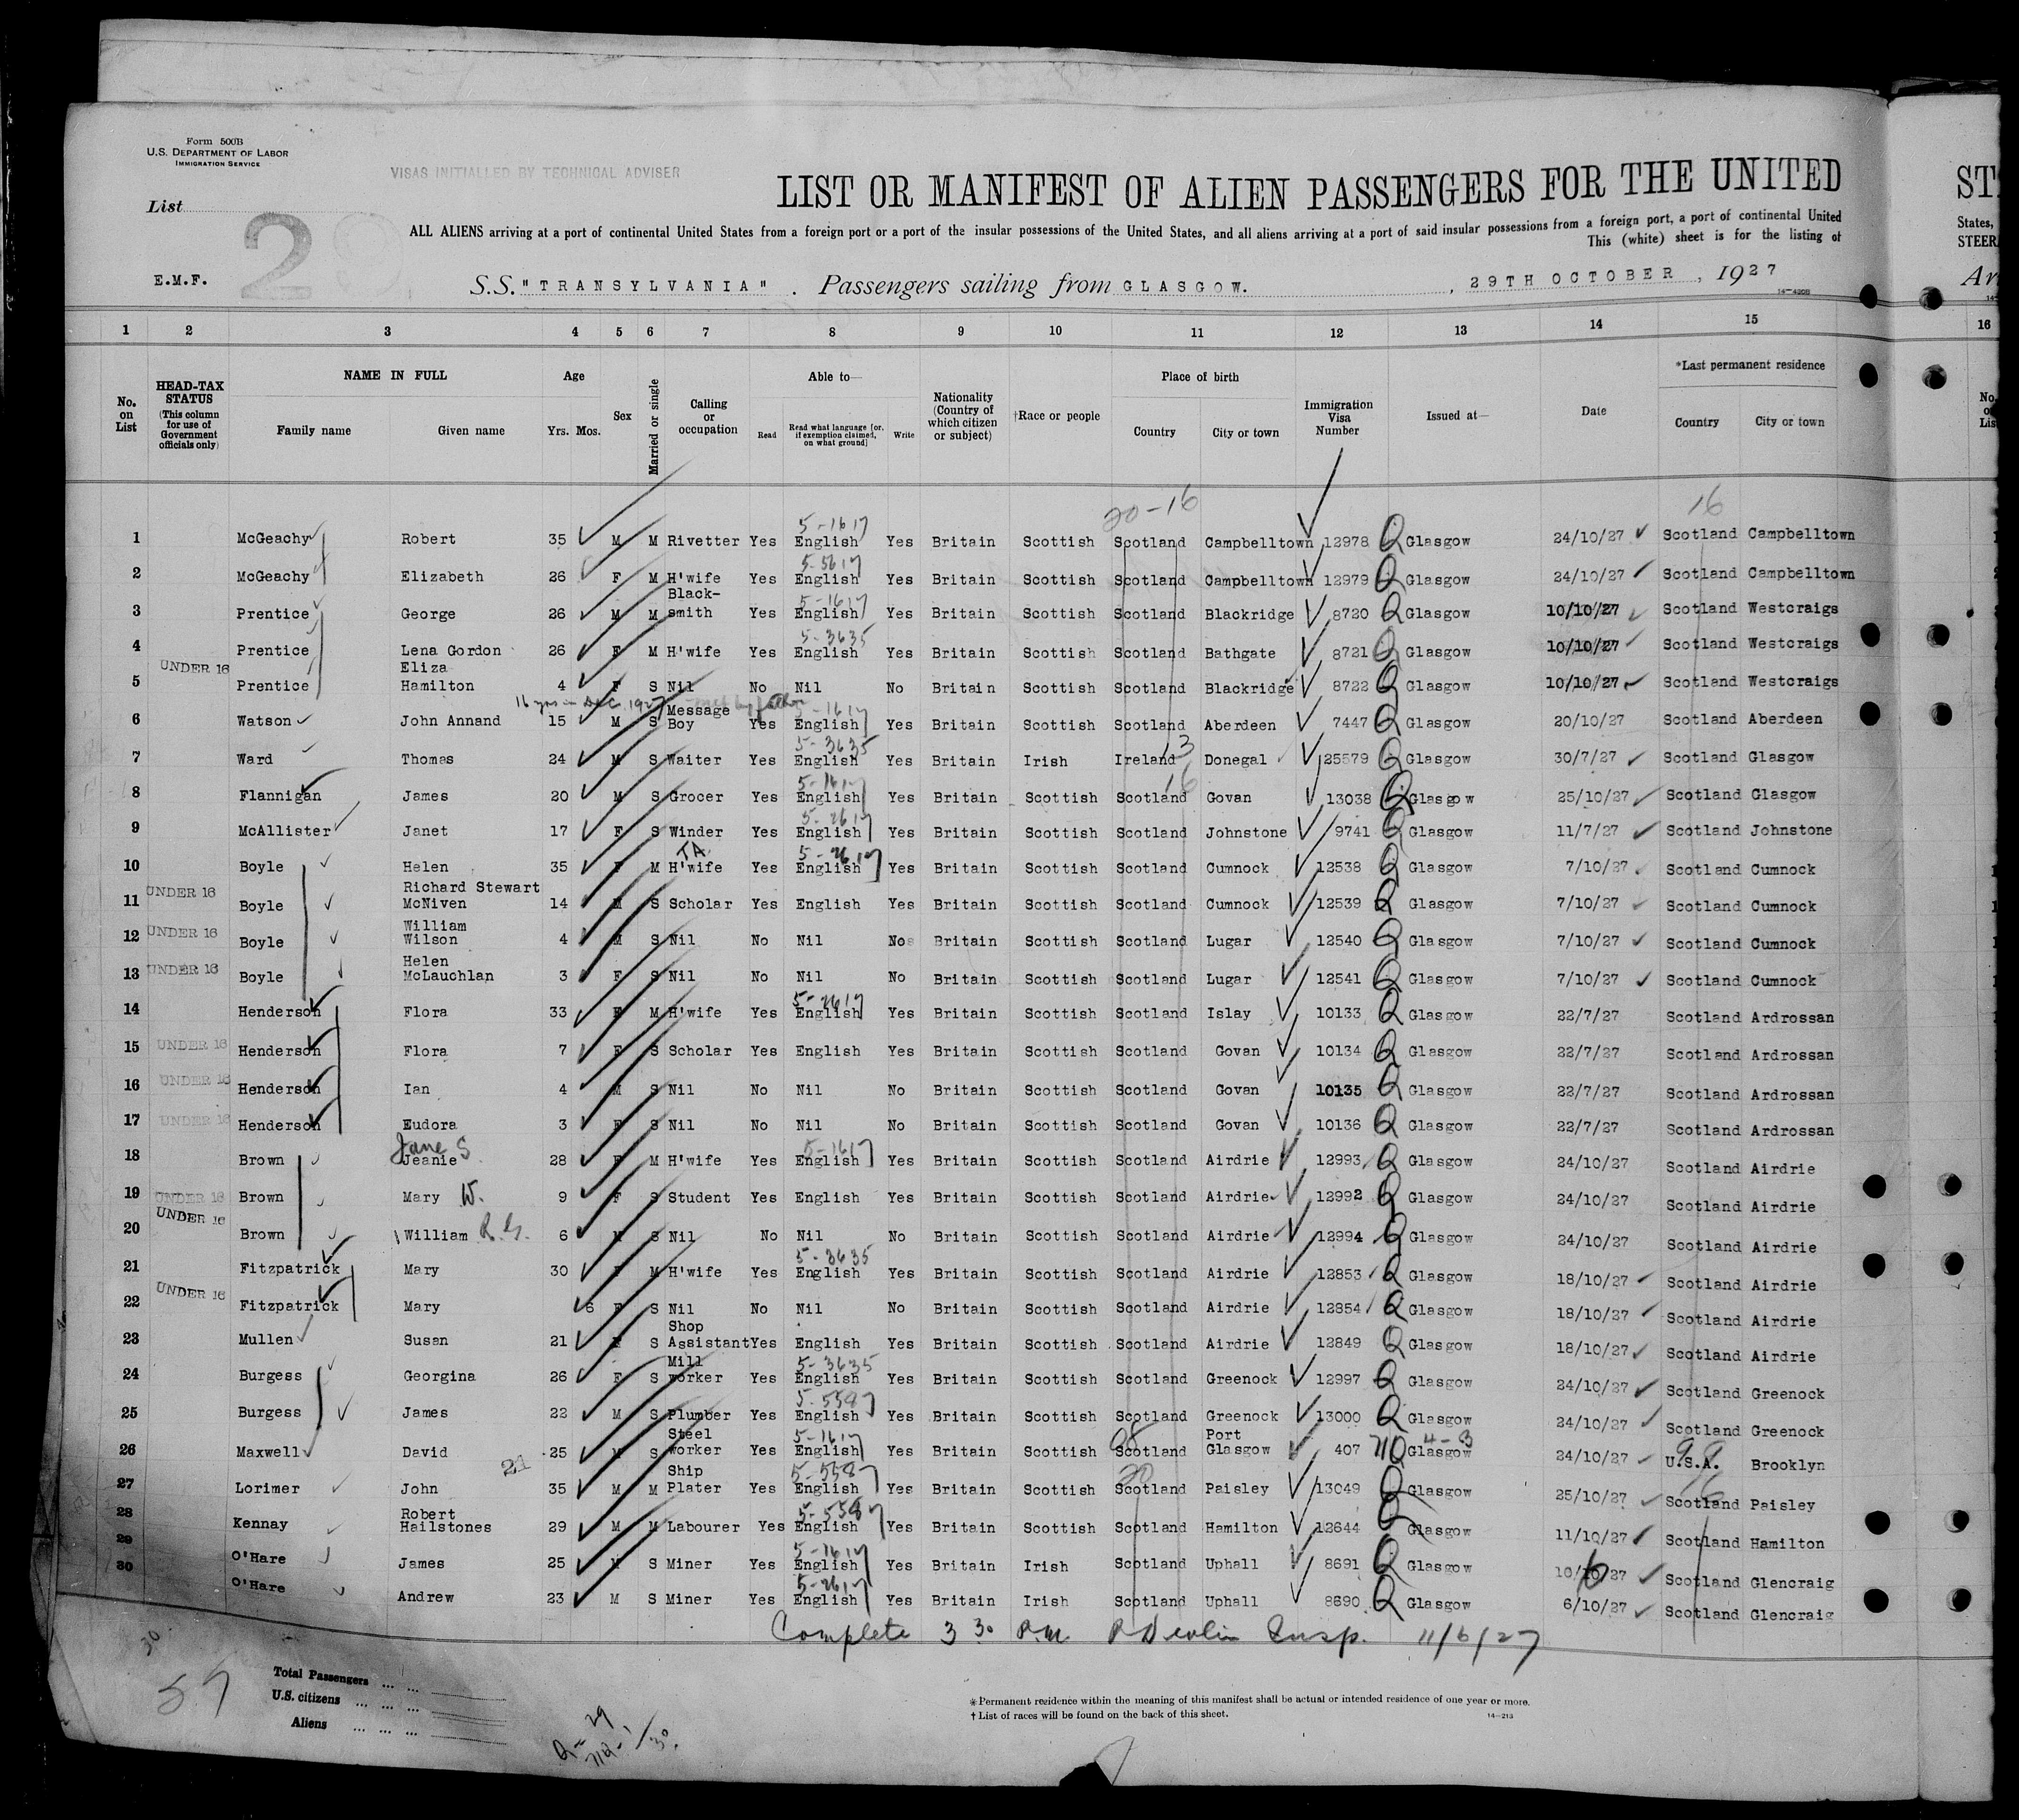 Form 500B
U.S. DEPARTMENT OF LABOR
IMMIGRATION SERVICE
VISAS INITIALLED BY TECHNICAL ADVISER
LIST OR MANIFEST OF ALIEN PASSENGERS FOR THE UNITED
List
29
ALL ALIENS arriving at a port of continental United States from a foreign port or a port of the insular possessions of the United States, and all aliens arriving at a port of said insular possessions from a foreign port, a port of continental United
This (white) sheet is for the listing of
E.M.F.
S.S. "TRANSYLVANIA". Passengers sailing from GLASGOW. , 29TH OCTOBER , 1927
14-4208
ST
States,
STEER
Ar
1 2 3 4 5 6 7 8 9 10 11 12 13 14 15 16
No. on List
HEAD-TAX STATUS (This column for use of Government officials only)
NAME IN FULL
Family name Given name
Age
Yrs. Mos.
Sex
Married or single
Calling or occupation
Able to—
Read
Read what language [or, if exemption claimed, on what ground]
Write
Nationality (Country of which citizen or subject)
†Race or people
Place of birth
Country City or town
Immigration Visa Number
Issued at—
Date
*Last permanent residence
Country City or town
20-16 16
1 McGeachy Robert 35 M M Rivetter Yes 5-1617 English Yes Britain Scottish Scotland Campbelltown 12978 Q Glasgow 24/10/27 Scotland Campbelltown
2 McGeachy Elizabeth 26 F M H'wife Yes 5-5617 English Yes Britain Scottish Scotland Campbelltown 12979 Q Glasgow 24/10/27 Scotland Campbelltown
3 Prentice George 26 M M Black-smith Yes 5-1617 English Yes Britain Scottish Scotland Blackridge 8720 Q Glasgow 10/10/27 Scotland Westcraigs
4 Prentice Lena Gordon 26 F M H'wife Yes 5-3635 English Yes Britain Scottish Scotland Bathgate 8721 Q Glasgow 10/10/27 Scotland Westcraigs
5 UNDER 16 Prentice Eliza Hamilton 4 F S Nil No Nil No Britain Scottish Scotland Blackridge 8722 Q Glasgow 10/10/27 Scotland Westcraigs
16 yrs in Dec. 1927 father
6 Watson John Annand 15 M S Message Boy Yes 5-1617 English Yes Britain Scottish Scotland Aberdeen 7447 Q Glasgow 20/10/27 Scotland Aberdeen
7 Ward Thomas 24 M S Waiter Yes 5-3635 English Yes Britain Irish Ireland 13 Donegal 25579 Q Glasgow 30/7/27 Scotland Glasgow
8 Flannigan James 20 M S Grocer Yes 5-1617 English Yes Britain Scottish Scotland 16 Govan 13038 Q Glasgow 25/10/27 Scotland Glasgow
9 McAllister Janet 17 F S Winder Yes 5-2617 English Yes Britain Scottish Scotland Johnstone 9741 Q Glasgow 11/7/27 Scotland Johnstone
10 Boyle Helen 35 F M TA H'wife Yes 5-2617 English Yes Britain Scottish Scotland Cumnock 12538 Q Glasgow 7/10/27 Scotland Cumnock
11 UNDER 16 Boyle Richard Stewart McNiven 14 M S Scholar Yes English Yes Britain Scottish Scotland Cumnock 12539 Q Glasgow 7/10/27 Scotland Cumnock
12 UNDER 16 Boyle William Wilson 4 M S Nil No Nil No Britain Scottish Scotland Lugar 12540 Q Glasgow 7/10/27 Scotland Cumnock
13 UNDER 16 Boyle Helen McLauchlan 3 F S Nil No Nil No Britain Scottish Scotland Lugar 12541 Q Glasgow 7/10/27 Scotland Cumnock
14 Henderson Flora 33 F M H'wife Yes 5-2617 English Yes Britain Scottish Scotland Islay 10133 Q Glasgow 22/7/27 Scotland Ardrossan
15 UNDER 16 Henderson Flora 7 F S Scholar Yes English Yes Britain Scottish Scotland Govan 10134 Q Glasgow 22/7/27 Scotland Ardrossan
16 UNDER 16 Henderson Ian 4 M S Nil No Nil No Britain Scottish Scotland Govan 10135 Q Glasgow 22/7/27 Scotland Ardrossan
17 UNDER 16 Henderson Eudora 3 F S Nil No Nil No Britain Scottish Scotland Govan 10136 Q Glasgow 22/7/27 Scotland Ardrossan
18 Brown Jane S Jeanie 28 F M H'wife Yes 5-1617 English Yes Britain Scottish Scotland Airdrie 12993 Q Glasgow 24/10/27 Scotland Airdrie
19 UNDER 16 Brown Mary W. 9 F S Student Yes English Yes Britain Scottish Scotland Airdrie 12992 Q Glasgow 24/10/27 Scotland Airdrie
20 UNDER 16 Brown William R.G. 6 M S Nil No Nil No Britain Scottish Scotland Airdrie 12994 Q Glasgow 24/10/27 Scotland Airdrie
21 Fitzpatrick Mary 30 F M H'wife Yes 5-3635 English Yes Britain Scottish Scotland Airdrie 12853 Q Glasgow 18/10/27 Scotland Airdrie
22 UNDER 16 Fitzpatrick Mary 6 F S Nil No Nil No Britain Scottish Scotland Airdrie 12854 Q Glasgow 18/10/27 Scotland Airdrie
23 Mullen Susan 21 F S Shop Assistant Yes English Yes Britain Scottish Scotland Airdrie 12849 Q Glasgow 18/10/27 Scotland Airdrie
24 Burgess Georgina 26 F S Mill worker Yes 5-3635 English Yes Britain Scottish Scotland Greenock 12997 Q Glasgow 24/10/27 Scotland Greenock
25 Burgess James 22 M S Plumber Yes 5-558 English Yes Britain Scottish Scotland Greenock 13000 Q Glasgow 24/10/27 Scotland Greenock
26 Maxwell David 25 M S Steel worker Yes 5-1617 English Yes Britain Scottish 08 Scotland Port Glasgow 407 NQ 4-3 Glasgow 24/10/27 99 U.S.A. Brooklyn
27 Lorimer John 21 35 M M Ship Plater Yes 5-558 English Yes Britain Scottish 20 Scotland Paisley 13049 Q Glasgow 25/10/27 16 Scotland Paisley
28 Kennay Robert Hailstones 29 M M Labourer Yes 5-558 English Yes Britain Scottish Scotland Hamilton 12644 Q Glasgow 11/10/27 Scotland Hamilton
29 O'Hare James 25 M S Miner Yes 5-1617 English Yes Britain Irish Scotland Uphall 8691 Q Glasgow 10/10/27 6 Scotland Glencraig
30 O'Hare Andrew 23 M S Miner Yes 5-2617 English Yes Britain Irish Scotland Uphall 8690 Q Glasgow 6/10/27 Scotland Glencraig
Complete 3 30 P.M. P Devlin Insp. 11/6/27
30
57
Total Passengers ... ...
U.S. citizens ... ... ...
Aliens ... ... ...
Q - 29
NQ - 1
/30.
*Permanent residence within the meaning of this manifest shall be actual or intended residence of one year or more.
† List of races will be found on the back of this sheet.
14-213